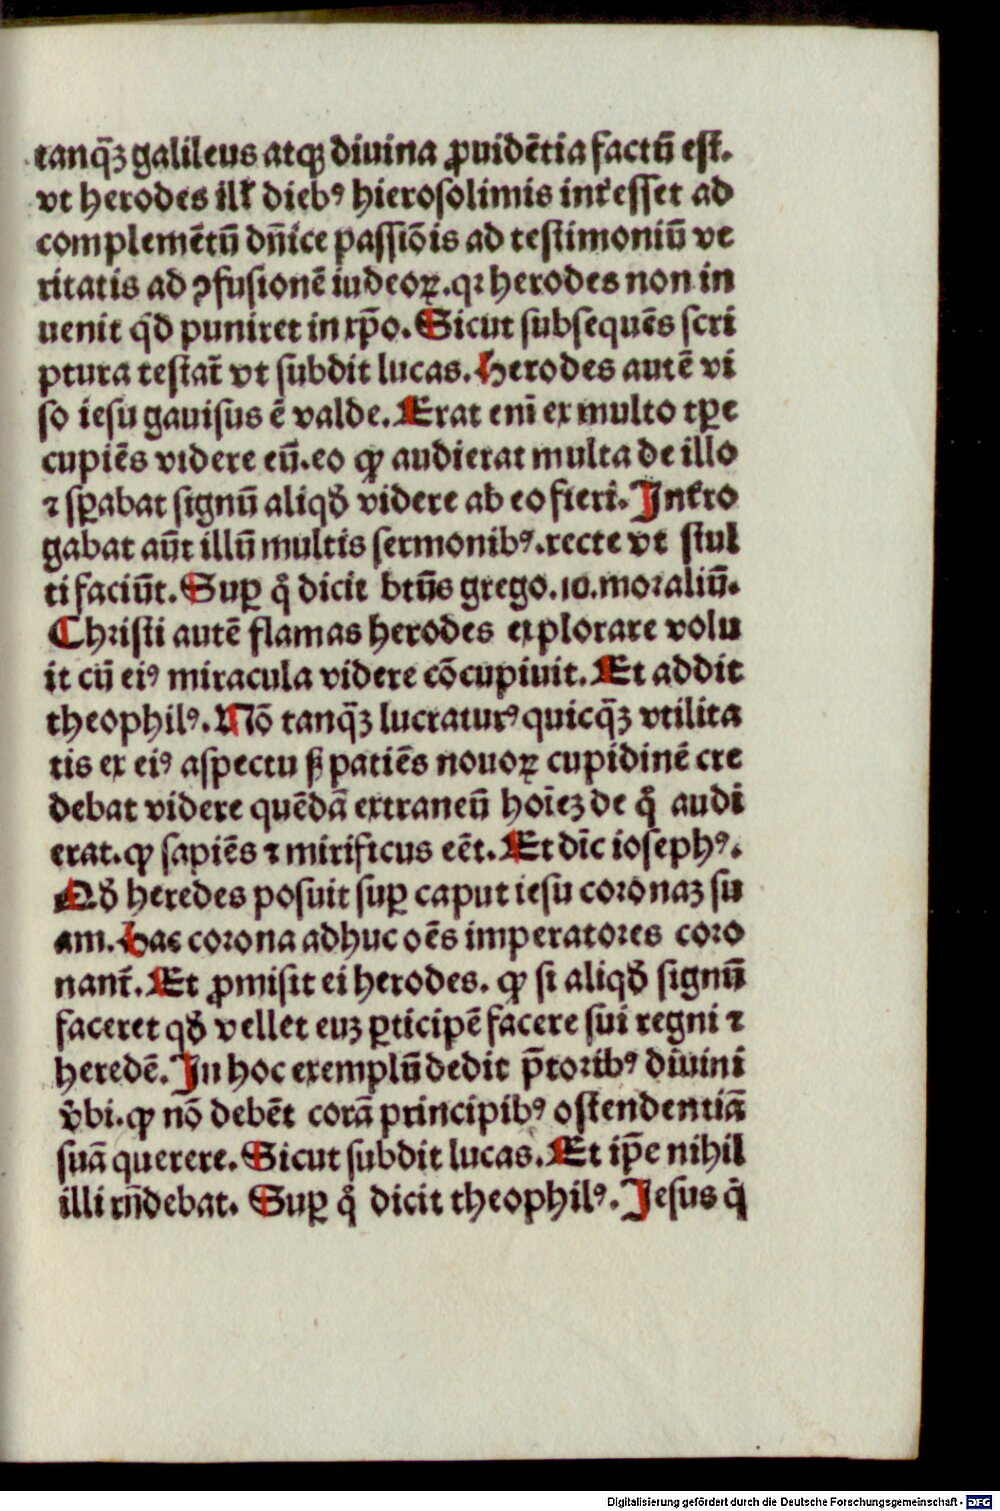 tanq̄ꝫ galileus atqꝫ diuina ꝓuidētia factū est.
vt herodes illꝭ diebꝰ hierosolimis int̕esset ad
complemētū dn̄ice passiōis ad testimoniū ve
ritatis ad ꝯfusionē iudeoꝝ.qꝛ herodes non in
uenit qd̄ puniret in xp̄o. Sicut subsequēs scri
ptura testat̄ vt subdit lucas. Herodes autē vi
so iesu gauisus ē valde. Erat eni̅ ex multo tꝑe
cupiēs videre eū.eo ꝙ audierat multa de illo
⁊ sꝑabat signū aliqd̕ videre ab eo fieri. Int̕ro
gabat aūt illū multis sermonibꝰ.recte vt stul
ti faciūt. Suꝑ qͦ dicit btūs grego.10.moꝛaliū.
Chꝛisti autē flamas herodes explorare volu
it cū eiꝰ miracula videre cōcupiuit. Et addit
theophilꝰ. Nō tanq̄ꝫ lucraturꝰ quicq̄ꝫ vtilita
tis ex eiꝰ aspectu sꝫ patiēs nouoꝝ cupidinē cre
debat videre quēdā extraneū hoīeꝫ de qͦ audi
erat.ꝙ sapiēs ⁊ mirificus eēt. Et dīc iosephꝰ.
Qd̕ heredes posuit suꝑ caput iesu coꝛonaꝫ su
am. Hac coꝛona adhuc oēs imperatoꝛes coꝛo
nant̄. Et ꝓmisit ei herodes. ꝙ si aliqd̕ signū
faceret qd̕ vellet euꝫ ꝑticipē facere sui regni ⁊
heredē. In hoc exemplū dedit p̄toꝛibꝰ diuini
v̕bi.ꝙ nō debēt corā principibꝰ ostendentiā
suā querere. Sicut subdit lucas. Et ip̄e nihil
illi rn̄debat. Suꝑ qͦ dicit theophilꝰ. Jesus q̄
Digitalisierung gefördert durch die Deutsche Forschungsgemeinschaft - DFG